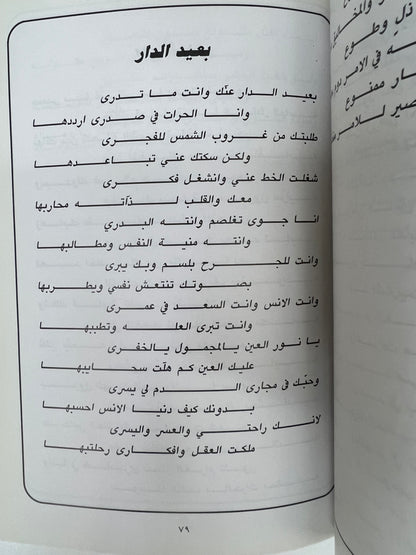 بعيد الدار
بعيد الدار عنّك وانت ما تدرى
وانا الحرات في صدرى ارددها
طلبتك من غروب الشمس للفجرى
ولكن سكتك عني تباعدها
شغلت الخط عني وانشغل فكرى
معك والقلب لذآته محاربها
انا جوى تغلصم وانته البدري
وانته منية النفس ومطالبها
وانت للجرح بلسم وبك يبرى
بصوتك تنتعش نفسي ويطربها
وانت الانس وانت السعد في عمرى
وانت تبرى العله وتطببها
يا نور العين يالمجمول يالخفرى
عليك العين كم هلّت سحايبها
وحبّك في مجارى الدم لي يسرى
بدونك كيف دنيا الانس احسبها
لانك راحتي والعسر واليسرى
ملكت العقل وافكارى رحلتبها
٧٩
ذل وطوع
ه في الامر
ار ممنوع